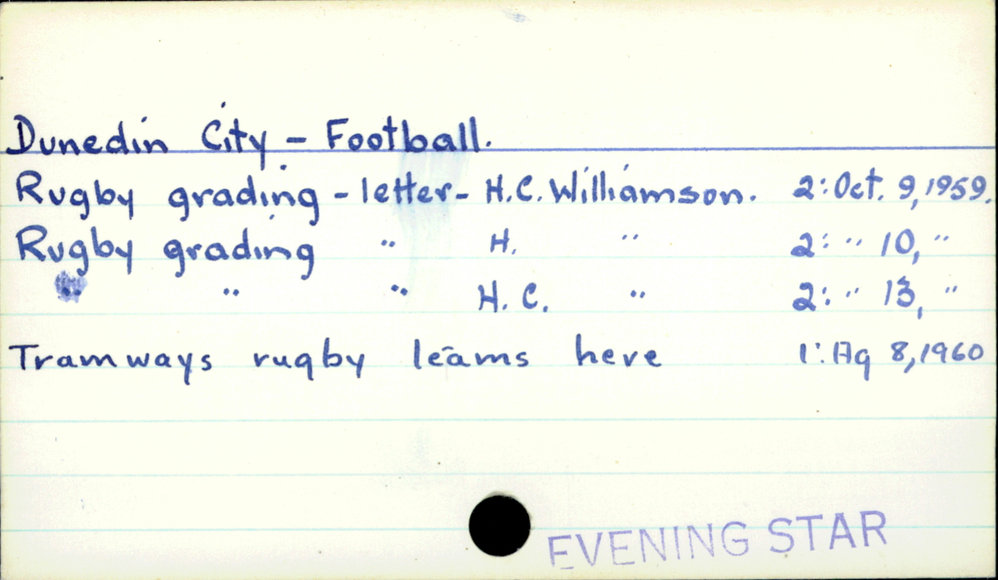 Dunedin City - Football.
Rugby grading - letter - H.C. Williamson. 2: Oct. 9, 1959.
Rugby grading " H. " 2: " 10, "
" " " H. C. " 2: " 13, "
Tramways rugby teams here 1: Ag 8, 1960
EVENING STAR